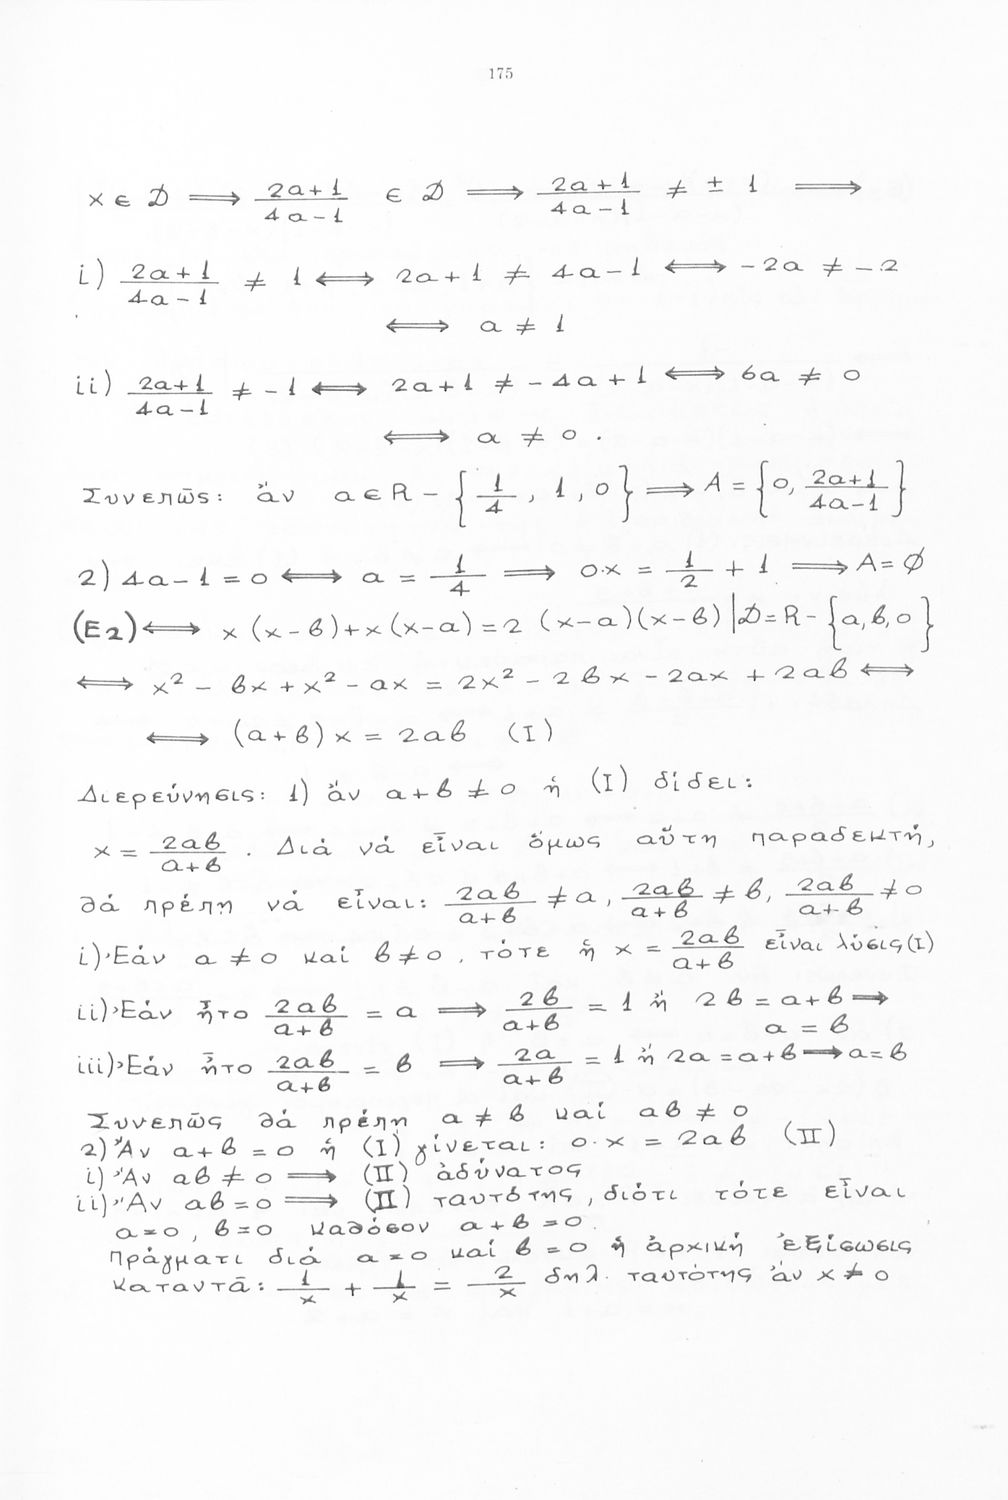 175
x ∈ D ⟹ (2a+1)/(4a-1) ∈ D ⟹ (2a+1)/(4a-1) ≠ ± 1 ⟹
i) (2a+1)/(4a-1) ≠ 1 ⟺ 2a+1 ≠ 4a-1 ⟺ -2a ≠ -2
⟺ a ≠ 1
ii) (2a+1)/(4a-1) ≠ -1 ⟺ 2a+1 ≠ -4a+1 ⟺ 6a ≠ 0
⟺ a ≠ 0.
Συνεπῶς: ἄν a∈R - {1/4, 1, 0} ⟹ A = {0, (2a+1)/(4a-1)}
2) 4a-1=0 ⟺ a = 1/4 ⟹ 0·x = 1/2 + 1 ⟹ A = ∅
(E2) ⟺ x(x-β)+x(x-a)=2(x-a)(x-β) | D=R-{a,β,0}
⟺ x² - βx + x² - ax = 2x² - 2βx - 2ax + 2aβ ⟺
⟺ (a+β)x = 2aβ (I)
Διερεύνησις: 1) ἄν a+β ≠ 0 ἡ (I) δίδει:
x = 2aβ/(a+β). Διά νά εἶναι ὅμως αὕτη παραδεκτή,
θά πρέπη νά εἶναι: 2aβ/(a+β) ≠ a, 2aβ/(a+β) ≠ β, 2aβ/(a+β) ≠ 0
i) Ἐάν a ≠ 0 καί β ≠ 0, τότε ἡ x = 2aβ/(a+β) εἶναι λύσις (I)
ii) Ἐάν ἦτο 2aβ/(a+β) = a ⟹ 2β/(a+β) = 1 ἤ 2β = a+β ⟹
a = β
iii) Ἐάν ἦτο 2aβ/(a+β) = β ⟹ 2a/(a+β) = 1 ἤ 2a = a+β ⟹ a=β
Συνεπῶς θά πρέπη a ≠ β καί aβ ≠ 0
2) Ἄν a+β = 0 ἡ (I) γίνεται: 0·x = 2aβ (II)
i) Ἄν aβ ≠ 0 ⟹ (II) ἀδύνατος
ii) Ἄν aβ = 0 ⟹ (II) ταυτότης, διότι τότε εἶναι
a=0, β=0 καθόσον a+β=0.
Πράγματι διά a=0 καί β=0 ἡ ἀρχική ἐξίσωσις
καταντᾶ: 1/x + 1/x = 2/x δηλ. ταυτότης ἄν x ≠ 0